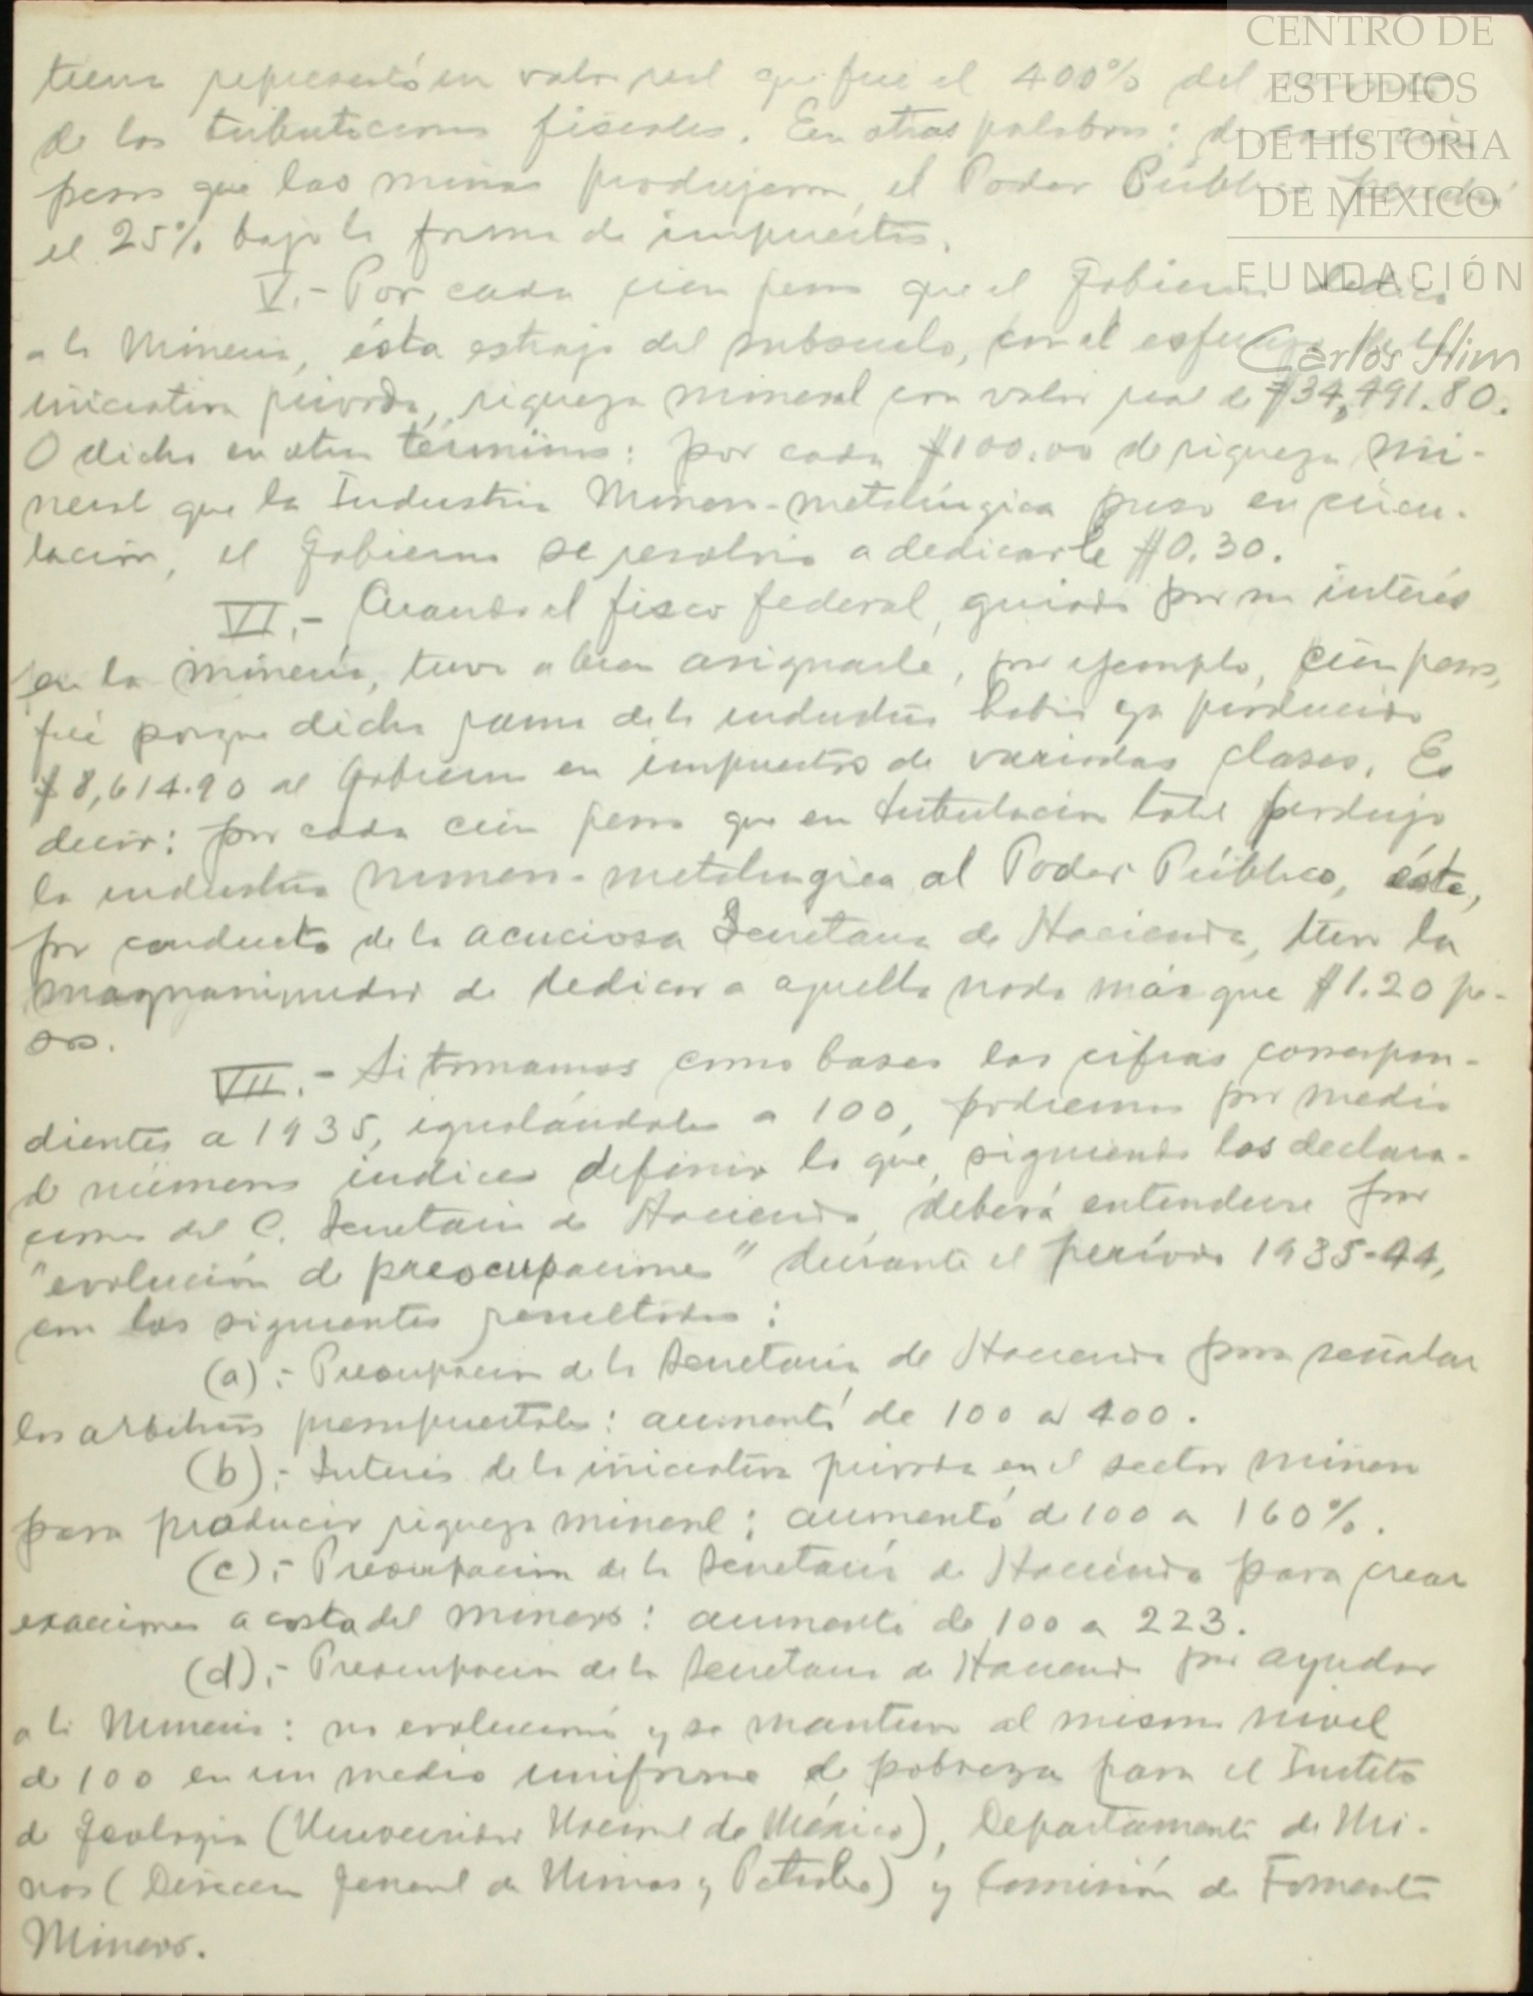 CENTRO DE
ESTUDIOS
DE HISTORIA
DE MÉXICO
FUNDACIÓN
Carlos Slim
tiem representó un valor real que fué el 400% del
de las tributaciones fiscales. En otras palabras: de cada cien
pesos que las minas produjeron, el Poder Público
el 25% bajo la forma de impuestos.
V.- Por cada cien pesos que el Gobierno dedicó
a la Minería, ésta extrajo del subsuelo, con el esfuerzo de la
iniciativa privada, riqueza mineral con valor real de $34,491.80.
O dicho en otros términos: por cada $100.00 de riqueza mi-
neral que la Industria Minero-metalúrgica puso en circu-
lación, el Gobierno se resolvió a dedicarle $0.30.
VI.- Cuando el fisco federal, guiado por su interés
en la minería, tuvo a bien asignarle, por ejemplo, cien pesos,
fué porque dicha rama de la industria había ya producido
$8,614.90 al Gobierno en impuestos de variadas clases. Es
decir: por cada cien pesos que en tributación total produjo
la industria minero-metalurgica al Poder Público, éste,
por conducto de la acuciosa Secretaria de Hacienda, tuvo la
magnanimidad de dedicar a aquella nada más que $1.20 pe-
sos.
VII.- Si tomamos como bases las cifras correspon-
dientes a 1935, igualándolas a 100, podremos por medio
de números índices definir lo que, siguiendo las declara-
ciones del C. Secretario de Hacienda, deberá entenderse por
"evolución de preocupaciones" durante el período 1935-44,
con los siguientes resultados:
(a).- Preocupación de la Secretaria de Hacienda para señalar
los arbitrios presupuestales: aumentó de 100 a 400.
(b).- Interés de la iniciativa privada en el sector minero
para producir riqueza mineral: aumentó de 100 a 160%.
(c).- Preocupación de la Secretaría de Hacienda para crear
exacciones a costa del minero: aumentó de 100 a 223.
(d).- Preocupación de la Secretaria de Hacienda por ayudar
a la Minería: no evolucionó y se mantuvo al mismo nivel
de 100 en un medio uniforme de pobreza para el Instituto
de Geología (Universidad Nacional de México), Departamento de Mi-
nas (Dirección General de Minas y Petróleo) y Comisión de Fomento
Minero.